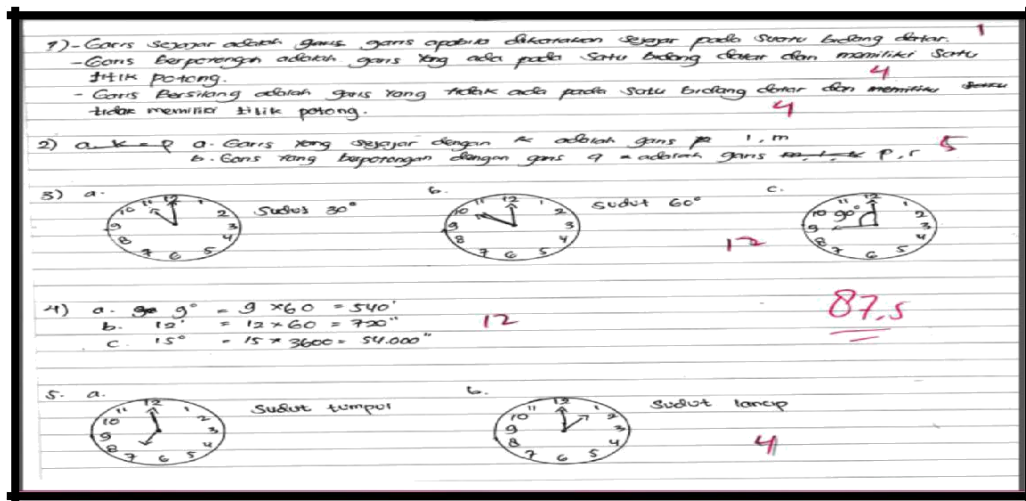 1) - Garis sejajar adalah garis garis apabila dikatakan sejajar pada suatu bidang datar. 1
- Garis berpotongan adalah garis yang ada pada satu bidang datar dan memiliki satu
titik potong. 4
- Garis Bersilang adalah garis yang tidak ada pada satu bidang datar dan memiliki
tidak memiliki titik potong. 4
2) a. k = p a. Garis yang sejajar dengan k adalah garis l, m 5
b. Garis yang berpotongan dengan garis q = adalah garis p, r
3) a. b. c.
12 1 2 3 4 5 6 7 8 9 10 11
Sudut 30°
12 1 2 3 4 5 6 7 8 9 10 11
Sudut 60°
12
12 1 2 3 4 5 6 7 8 9 10 11
90°
4) a. 9° = 9 x 60 = 540'
b. 12' = 12 x 60 = 720" 12
c. 15° = 15 x 3600 = 54.000"
87,5
5. a. b.
12 1 2 3 4 5 6 7 8 9 10 11
Sudut tumpul
12 1 2 3 4 5 6 7 8 9 10 11
Sudut lancip
4